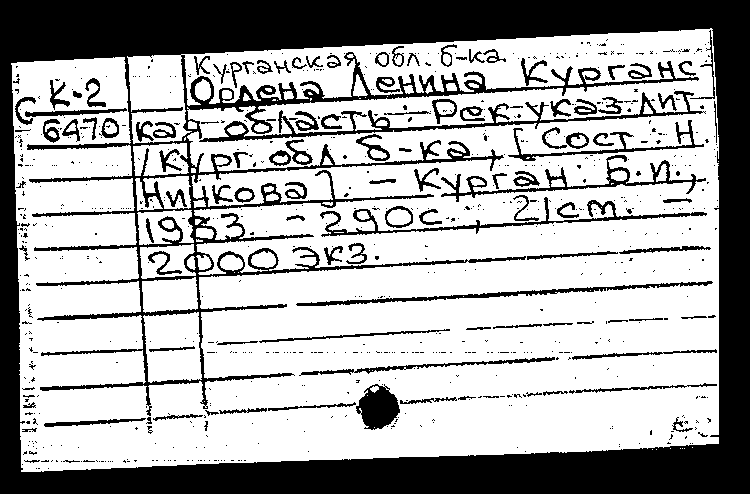 Курганская обл. б-ка
К-2 Ордена Ленина Курганс-
G 6470 кая область: Рек. указ. лит.
/ Кург. обл. б-ка; [Сост.: Н.
Нинкова]. - Курган: Б.и.,
1983. - 290с.; 21см. -
2000 экз.